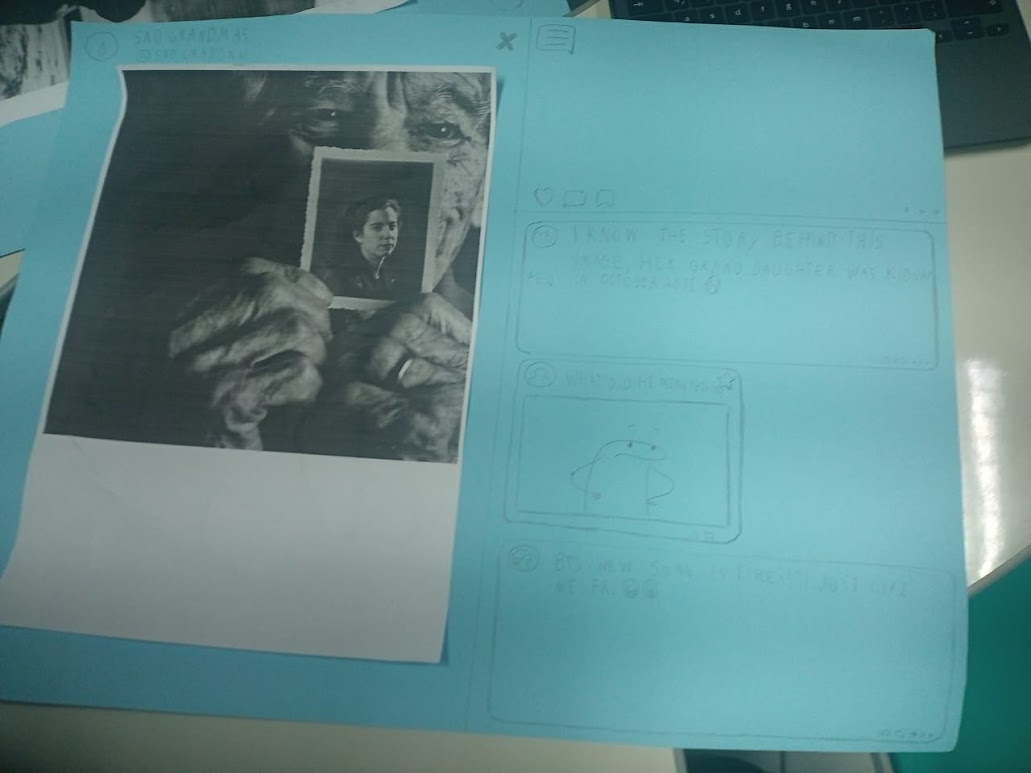 SAD GRANDMAS
I KNOW THE STORY BEHIND THIS
IMAGE, HER GRAND DAUGHTER WAS KIDNAP
PED IN OCTOBER
WHAT DID HE
BTS NEW SONG IS FIRE JUST LIKE
ME FR.